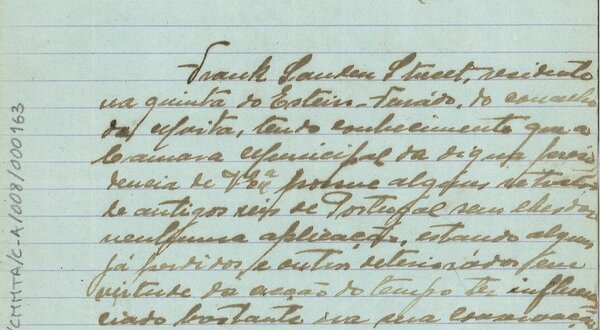 Frank Sanden Street, residente
na quinta do Esteiro-Furado, do concelho
da Moita, tendo conhecimento que a
Camara Municipal da digna presi
dencia de V. Exª possue alguns retratos
de antigos reis de Portugal sem lhe dar
nenhuma aplicação, estando alguns
já perdidos e outros deteriorados em
virtude da acção do tempo ter influen
ciado bastante na sua conservação
CMMTA/C-A/008/000163